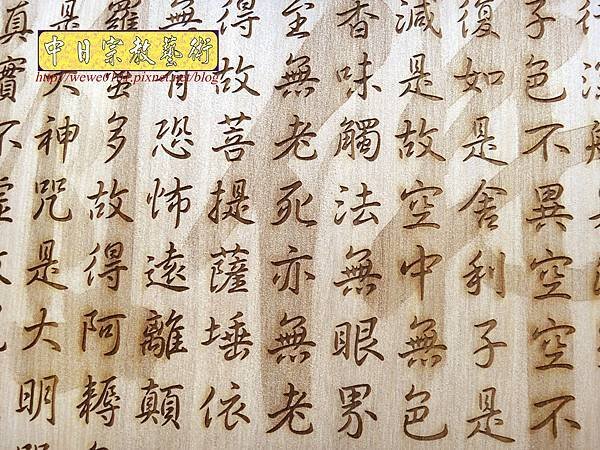 中日宗教藝術
行深般
子色不異空空不
復如是舍利子是
減是故空中無色
香味觸法無眼界
至無老死亦無老
得故菩提薩埵依
無有恐怖遠離顛
羅蜜多故得阿耨
是大神咒是大明
真實不虛故